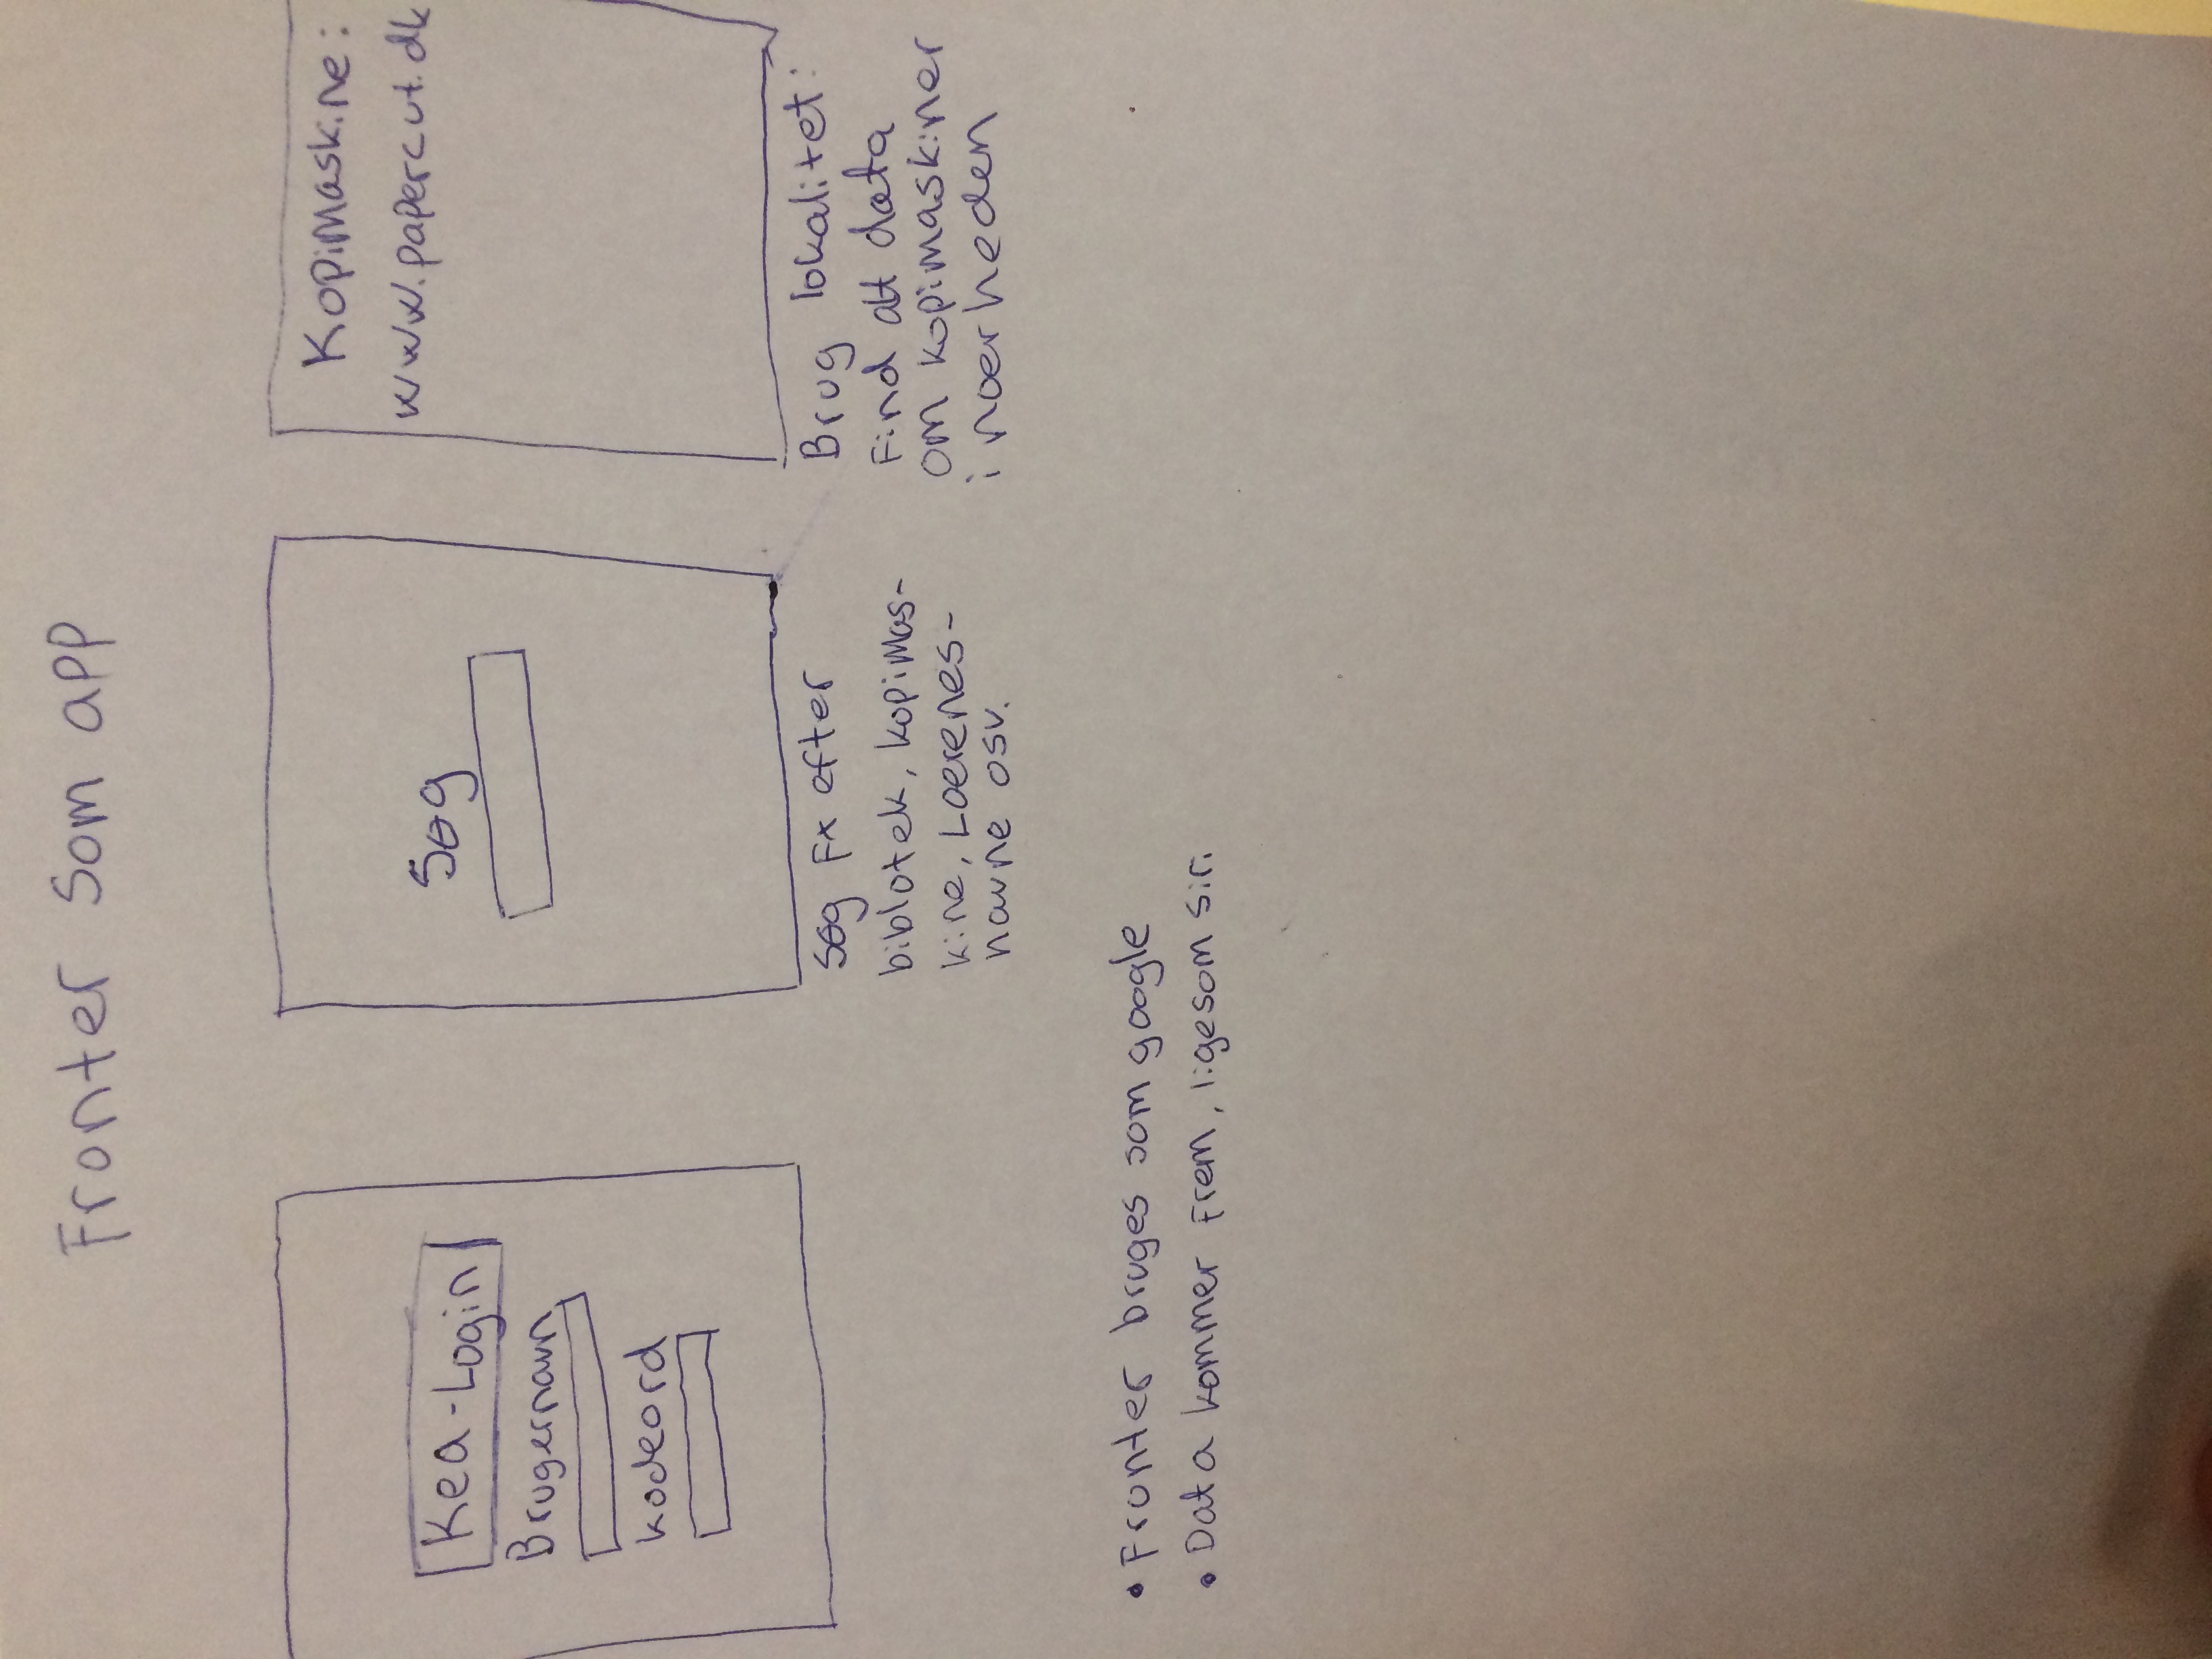 Fronter som app
Kea-Login
Brugernavn
kodeord
Søg
Søg fx efter
biblotek, kopimas-
kine, Lærenes-
navne osv.
Kopimaskine:
www.papercut.dk
Brug lokalitet:
Find alt data
om kopimaskiner
i nærheden
• Fronter bruges som google
• Data kommer frem, ligesom siri